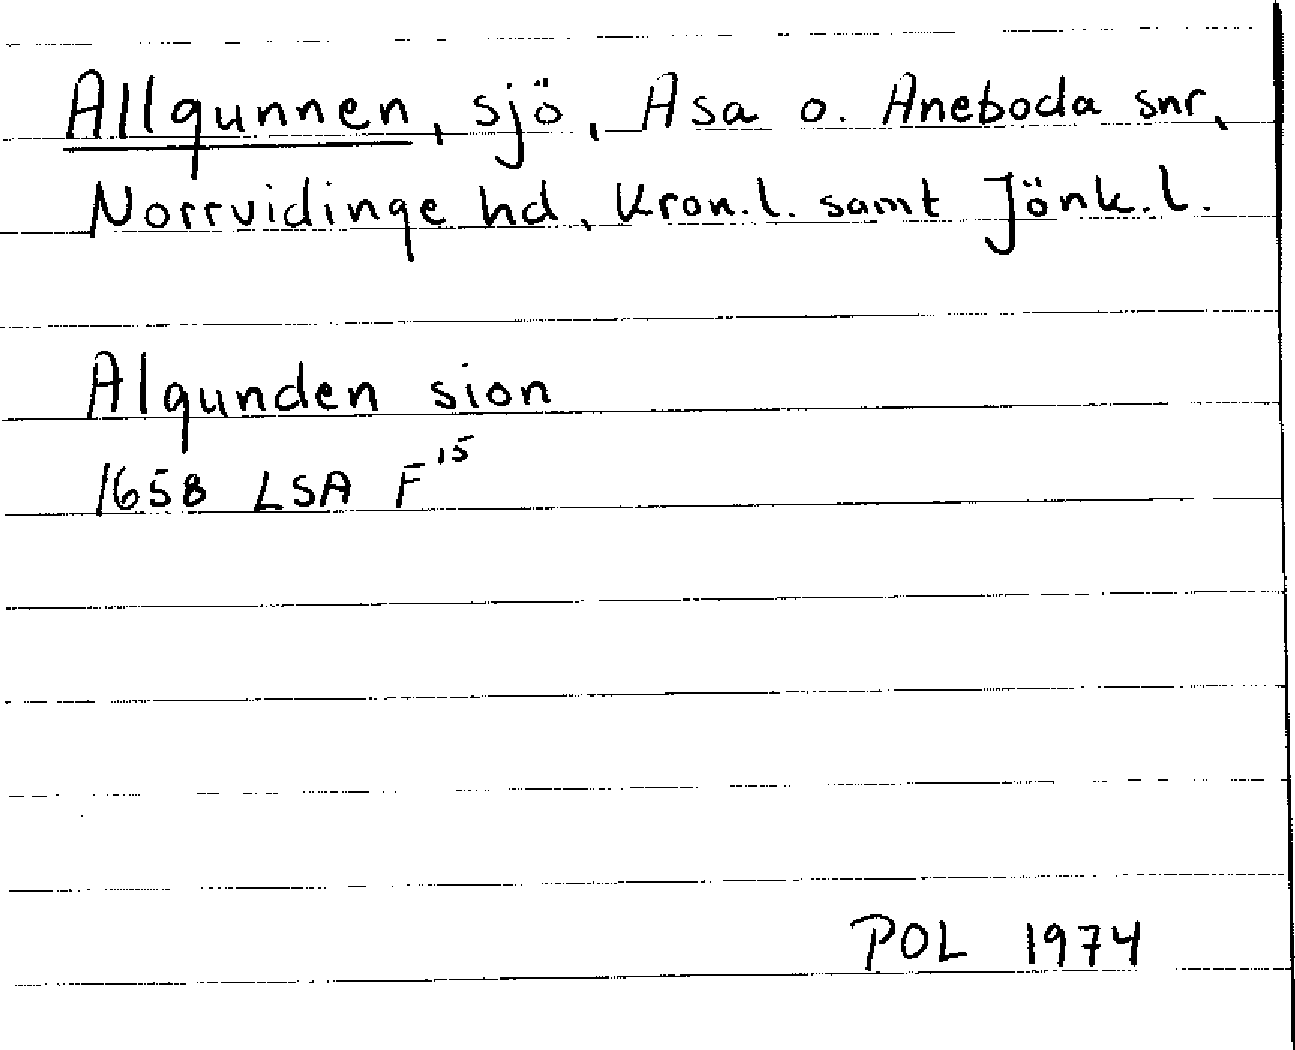 Allgunnen, sjö, Asa o. Aneboda snr,
Norrvidinge hd, Kron.l. samt Jönk.l.
Algunden sion
1658 LSA F15
POL 1974